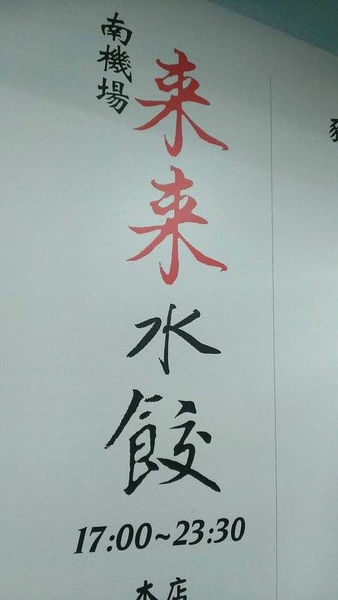 南機場
来来水餃
17:00~23:30
本店